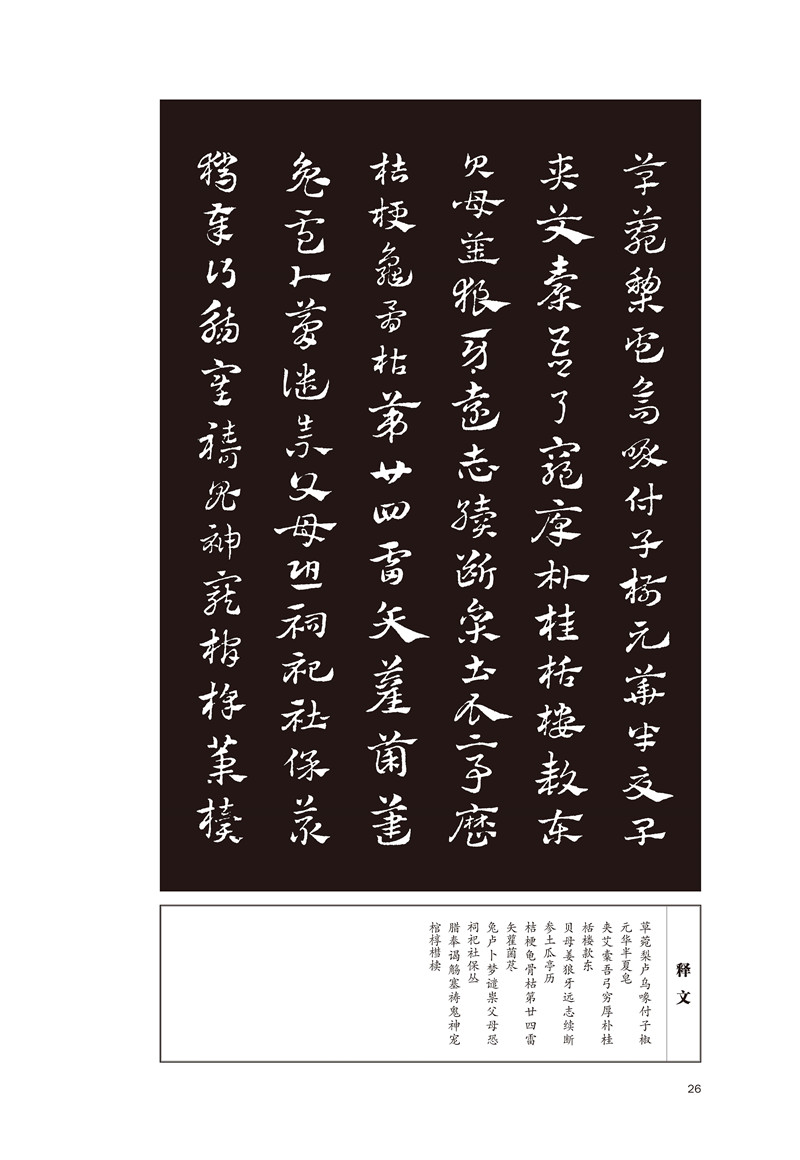 草菀梨卢乌喙付子椒元华半夏皂
夹艾橐吾弓穷厚朴桂栝楼款东
贝母姜狼牙远志续断参土瓜亭历
桔梗龟骨枯第廿四雷矢雚菌荩
兔卢卜梦谴祟父母恐祠祀社保丛
腊奉谒觞塞祷鬼神宠棺椁槥椟
释文
草菀梨卢乌喙付子椒
元华半夏皂
夹艾橐吾弓穷厚朴桂
栝楼款东
贝母姜狼牙远志续断
参土瓜亭历
桔梗龟骨枯第廿四雷
矢雚菌荩
兔卢卜梦谴祟父母恐
祠祀社保丛
腊奉谒觞塞祷鬼神宠
棺椁槥椟
26